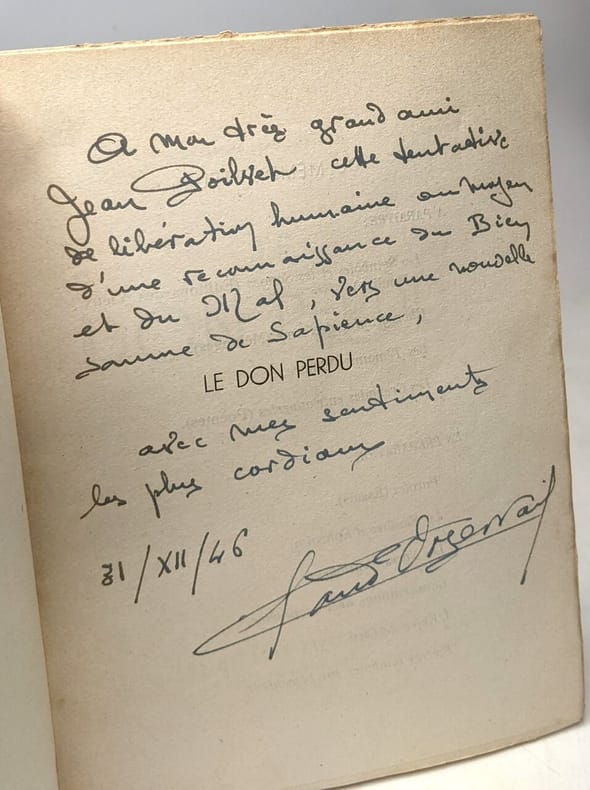 A mon très grand ami
Jean cette tentative
de libération humaine au moyen
d'une reconnaissance du Bien
et du Mal, vers une nouvelle
somme de Sapience,
LE DON PERDU
avec mes sentiments
les plus cordiaux
31/XII/46